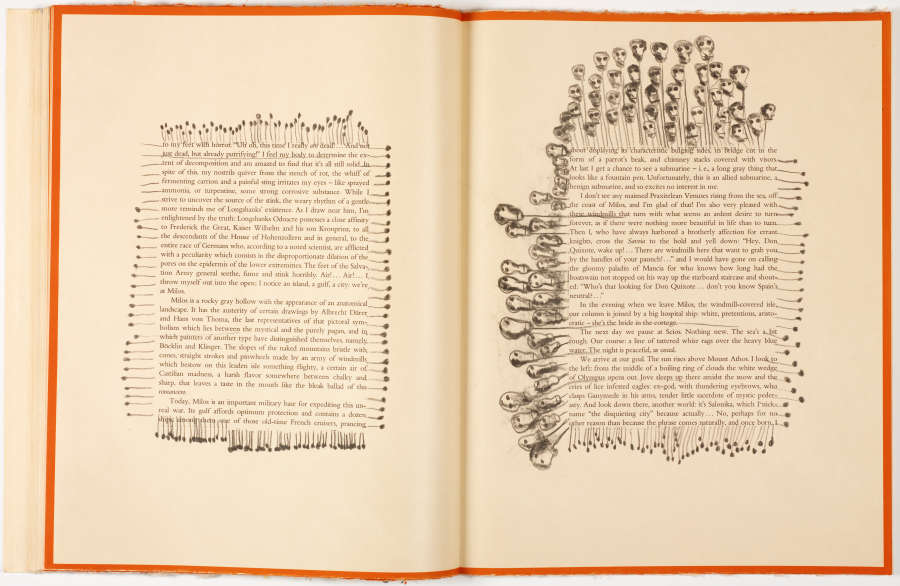 to my feet with horror. "Uh oh, this time I really am dead! . . . And not
just dead, but already putrifying!" I feel my body to determine the ex-
tent of decomposition and am amazed to find that it's all still solid. In
spite of this, my nostrils quiver from the stench of rot, the whiff of
fermenting carrion and a painful sting irritates my eyes – like sprayed
ammonia, or turpentine, some strong corrosive substance. While I
strive to uncover the source of the stink, the weary rhythm of a gentle
snore reminds me of Longshanks' existence. As I draw near him, I'm
enlightened by the truth: Longshanks Odoacre possesses a close affinity
to Frederick the Great, Kaiser Wilhelm and his son Kronprinz, to all
the descendants of the House of Hohenzollern and in general, to the
entire race of Germans who, according to a noted scientist, are afflicted
with a peculiarity which consists in the disproportionate dilation of the
pores on the epidermis of the lower extremities. The feet of the Salva-
tion Army general seethe, fume and stink horribly. Air! . . . Air! . . . I
throw myself out into the open; I notice an island, a gulf, a city: we're
at Milos.
Milos is a rocky gray hollow with the appearance of an anatomical
landscape. It has the austerity of certain drawings by Albrecht Dürer
and Hans von Thoma, the last representatives of that pictorial sym-
bolism which lies between the mystical and the purely pagan, and in
which painters of another type have distinguished themselves, namely,
Böcklin and Klinger. The slopes of the naked mountains bristle with
cones, straight strokes and pinwheels made by an army of windmills
which bestow on this leaden isle something flighty, a certain air of
Castilian madness, a harsh flavor somewhere between chalky and
sharp, that leaves a taste in the mouth like the bleak ballad of the
romancero.
Today, Milos is an important military base for expediting this un-
real war. Its gulf affords optimum protection and contains a dozen
ships; among them one of those old-time French cruisers, prancing
about displaying its characteristic bulging sides, its bridge cut in the
form of a parrot's beak, and chimney stacks covered with visors.
At last I get a chance to see a submarine – i.e., a long gray thing that
looks like a fountain pen. Unfortunately, this is an allied submarine, a
benign submarine, and so excites no interest in me.
I don't see any maimed Praxitelean Venuses rising from the sea, off
the coast of Milos, and I'm glad of that! I'm also very pleased with
these windmills that turn with what seems an ardent desire to turn
forever, as if there were nothing more beautiful in life than to turn.
Then I, who have always harbored a brotherly affection for errant
knights, cross the Savoia to the hold and yell down: "Hey, Don
Quixote, wake up! . . . There are windmills here that want to grab you
by the handles of your paunch! . . ." and I would have gone on calling
the gloomy paladin of Mancia for who knows how long had the
boatswain not stopped on his way up the starboard staircase and shout-
ed: "Who's that looking for Don Quixote . . . don't you know Spain's
neutral? . . ."
In the evening when we leave Milos, the windmill-covered isle,
our column is joined by a big hospital ship: white, pretentious, aristo-
cratic – she's the bride in the cortege.
The next day we pause at Scios. Nothing new. The sea's a bit
rough. Our course: a line of tattered white rags over the heavy blue
water. The night is peaceful, as usual.
We arrive at our goal. The sun rises above Mount Athos. I look to
the left: from the middle of a boiling ring of clouds the white wedge
of Olympus opens out. Jove sleeps up there amidst the snow and the
cries of lice infested eagles: ex-god, with thundering eyebrows, who
clasps Ganymede in his arms, tender little sacerdote of mystic peder-
asty. And look down there, another world: it's Salonika, which I nick-
name "the disquieting city" because actually . . . No, perhaps for no
other reason than because the phrase comes naturally, and once born, I